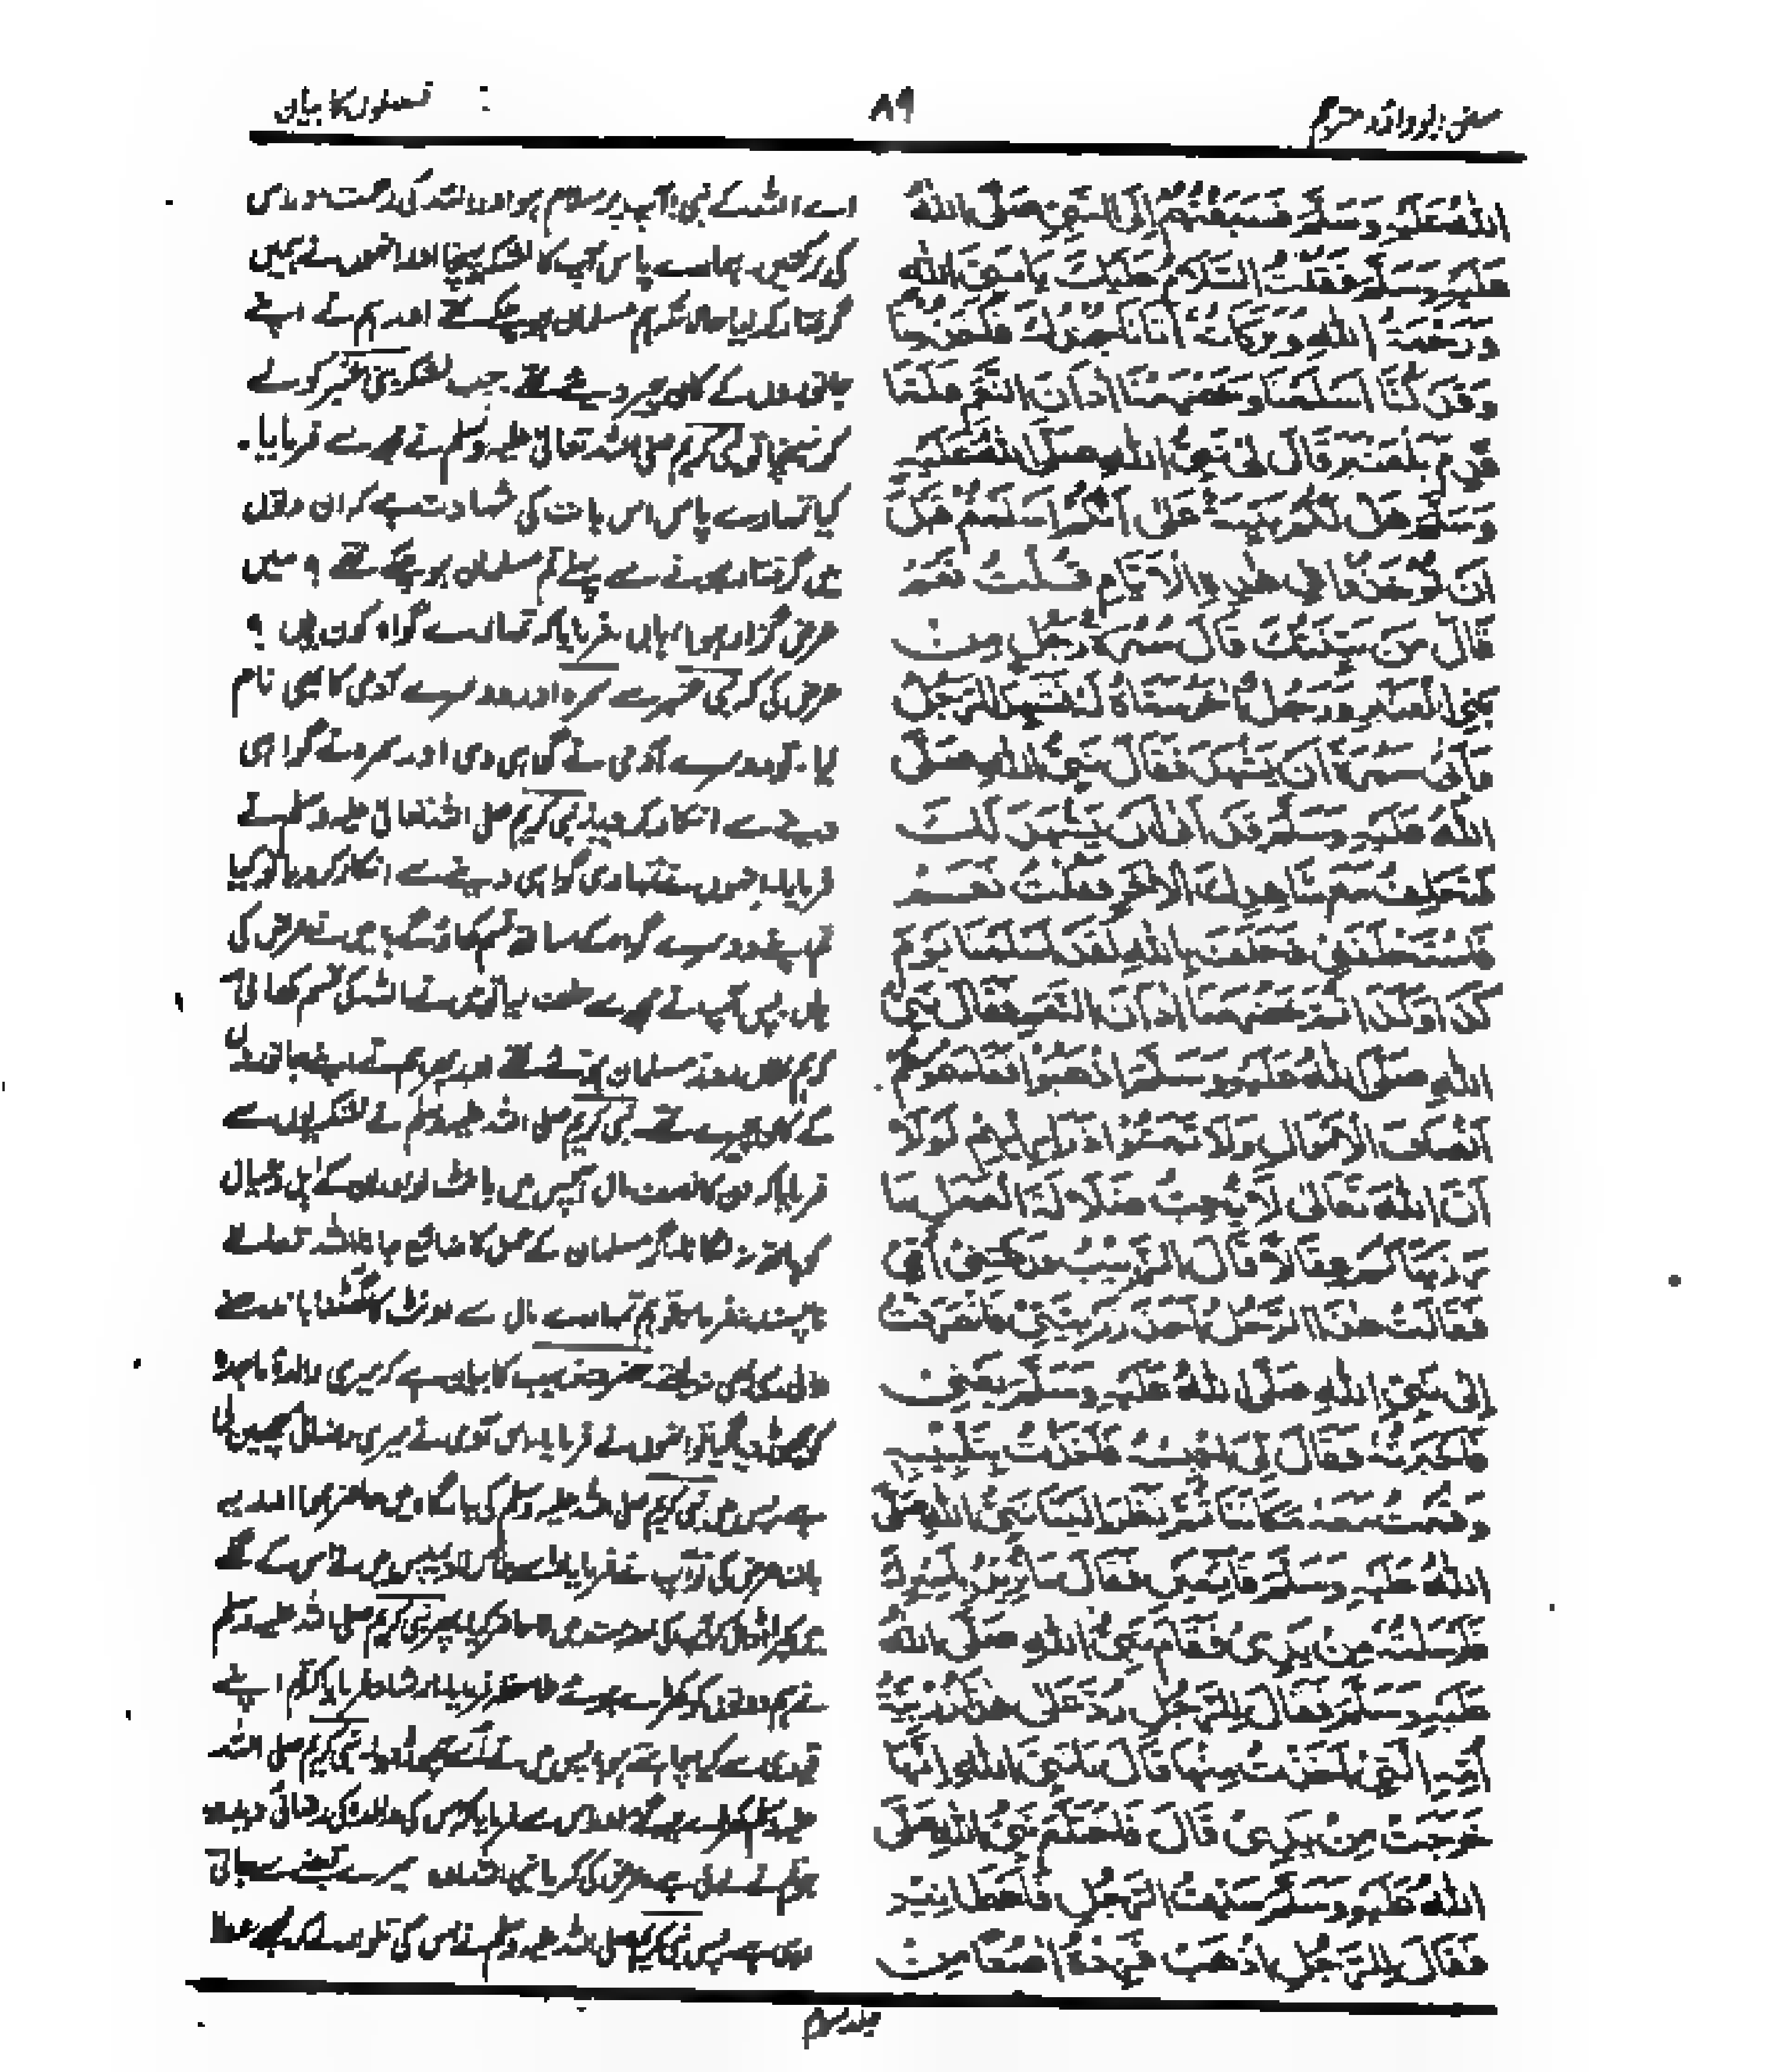 سنن ابوداؤد مترجم
۸۹
فیصلوں کا بیان
اللہُ عَلَیْہِ وَسَلَّمَ فَسَبَقْتُہُمْ اِلَی النَّبِیِّ صَلَّی اللہُ
عَلَیْہِ وَسَلَّمَ فَقُلْتُ السَّلَامُ عَلَیْکَ یَا نَبِیَّ اللہِ
وَرَحْمَۃُ اللہِ وَبَرَکَاتُہٗ اَتَانَا جُنْدُکَ فَاَخَذُوْنَا
وَقَدْ کُنَّا اَسْلَمْنَا وَخَضْرَمْنَا اٰذَانَ النَّعَمِ فَلَمَّا
قَدِمَ بَلْعَنْبَرِ قَالَ لِیْ نَبِیُّ اللہِ صَلَّی اللہُ عَلَیْہِ
وَسَلَّمَ ھَلْ لَکُمْ بَیِّنَۃٌ عَلٰی اَنَّکُمْ اَسْلَمْتُمْ قَبْلَ
اَنْ تُؤْخَذُوْا فِیْ ھٰذِہِ الْاَیَّامِ قُلْتُ نَعَمْ
قَالَ مَنْ بَیِّنَتُکَ قَالَ سَمُرَۃُ رَجُلٌ مِنْ
بَنِی الْعَنْبَرِ وَرَجُلٌ اٰخَرُ سَمَّاہُ لَہٗ فَشَہِدَ الرَّجُلُ
وَاَبٰی سَمُرَۃُ اَنْ یَّشْہَدَ فَقَالَ نَبِیُّ اللہِ صَلَّی
اللہُ عَلَیْہِ وَسَلَّمَ قَدْ اَبٰی اَنْ یَّشْہَدَ لَکَ
فَتَحْلِفُ مَعَ شَاھِدِکَ الْاٰخَرِ فَقُلْتُ نَعَمْ
فَاسْتَحْلَفَنِیْ فَحَلَفْتُ بِاللہِ لَقَدْ اَسْلَمْنَا یَوْمَ
کَذَا وَکَذَا ثُمَّ خَضْرَمْنَا اٰذَانَ النَّعَمِ فَقَالَ نَبِیُّ
اللہِ صَلَّی اللہُ عَلَیْہِ وَسَلَّمَ اذْھَبُوْا فَقَاسِمُوْھُمْ
اَنْصَافَ الْاَمْوَالِ وَلَا تَمَسُّوْا ذَرَارِیَّہُمْ لَوْلَا
اَنَّ اللہَ تَعَالٰی لَا یُحِبُّ ضَلَالَۃَ الْعَمَلِ مَا
رَزَیْنَاکُمْ عِقَالًا قَالَ الزُّبَیْبُ فَدَعَتْنِیْ اُمِّیْ
فَقَالَتْ ھٰذَا الرَّجُلُ اَخَذَ زِرْبِیَّتِیْ فَانْصَرَفْتُ
اِلٰی نَبِیِّ اللہِ صَلَّی اللہُ عَلَیْہِ وَسَلَّمَ یَعْنِیْ
فَاَخْبَرْتُہٗ فَقَالَ لِیْ احْبِسْہُ فَاَخَذْتُ بِتَلْبِیْبِہٖ
وَقُمْتُ مَعَہٗ مَکَانَنَا ثُمَّ نَظَرَ اِلَیْنَا نَبِیُّ اللہِ صَلَّی
اللہُ عَلَیْہِ وَسَلَّمَ قَائِمَیْنِ فَقَالَ مَا تُرِیْدُ بِاَسِیْرِکَ
فَاَرْسَلْتُہٗ مِنْ یَدِیْ فَقَامَ نَبِیُّ اللہِ صَلَّی اللہُ
عَلَیْہِ وَسَلَّمَ فَقَالَ لِلرَّجُلِ رُدَّ عَلٰی ھٰذَا زِرْبِیَّۃَ
اُمِّہِ الَّتِیْ اَخَذْتَ مِنْہَا قَالَ یَا نَبِیَّ اللہِ اِنَّہَا
خَرَجَتْ مِنْ یَدِیْ قَالَ فَاخْتَلَعَ نَبِیُّ اللہِ صَلَّی
اللہُ عَلَیْہِ وَسَلَّمَ سَیْفَ الرَّجُلِ فَاَعْطَانِیْہِ
فَقَالَ لِلرَّجُلِ اذْھَبْ فَزِدْہُ اٰصُعًا مِنْ
اے اللہ کے نبی! آپ پر سلام ہو اور اللہ کی رحمت اور اس
کی برکتیں۔ ہمارے پاس آپ کا لشکر پہنچا اور انھوں نے ہمیں
گرفتار کر لیا حالانکہ ہم مسلمان ہو چکے تھے اور ہم نے اپنے
جانوروں کے کان چیر دیئے تھے۔ جب لشکر بنی عنبر کو لے
کر پہنچا تو نبی کریم صلی اللہ تعالیٰ علیہ وسلم نے مجھ سے فرمایا۔
کیا تمہارے پاس اس بات کی شہادت ہے کہ ان دنوں
میں گرفتار ہونے سے پہلے تم مسلمان ہو چکے تھے؟ میں
عرض گزار ہوا ہاں۔ فرمایا کہ تمہارے گواہ کون ہیں؟
عرض کی کہ بنی عنبر سے سمرہ اور دوسرے آدمی کا بھی نام
لیا۔ تو دوسرے آدمی نے گواہی دی اور سمرہ نے گواہی
دینے سے انکار کر دیا۔ نبی کریم صلی اللہ تعالیٰ علیہ وسلم نے
فرمایا۔ انھوں نے تمہاری گواہی دینے سے انکار کر دیا تو کیا
تم اپنے دوسرے گواہ کے ساتھ قسم کھاؤ گے؟ میں نے عرض کی
ہاں۔ پس آپ نے مجھ سے حلف لیا تو میں نے اللہ کی قسم کھائی
کہ ہم فلاں روز مسلمان ہوئے تھے اور پھر ہم نے اپنے جانوروں
کے کان چیرے تھے۔ نبی کریم صلی اللہ علیہ وسلم نے لشکریوں سے
فرمایا کہ ان کا نصف مال آپس میں بانٹ لو اور ان کے اہل و عیال
کو ہاتھ نہ لگانا۔ اگر مسلمان کے عمل کا ضائع جانا اللہ تعالیٰ
ناپسند نہ فرماتا تو ہم تمہارے مال سے اونٹ کا گھٹنا باندھنے
والی رسی بھی نہ لیتے۔ حضرت زبیب کا بیان ہے کہ میری والدہ ماجدہ
نے فرمایا۔ اس آدمی نے میری رضائی چھین لی
ہے۔ پس میں نبی کریم صلی اللہ علیہ وسلم کی بارگاہ میں حاضر ہوا اور یہ
بات عرض کی تو آپ نے فرمایا۔ اسے پکڑ لو۔ پس میں نے اس کے گلے
نے ہم دونوں کو کھڑے ہوئے ملاحظہ فرمایا۔ ارشاد فرمایا کہ تم اپنے
قیدی سے کیا چاہتے ہو؟ پس میں نے اسے چھوڑ دیا۔ نبی کریم صلی اللہ
علیہ وسلم کھڑے ہوئے اور اس سے فرمایا کہ اس کی والدہ کی رضائی دے دو
جو تم نے لے لی ہے۔ عرض کی کہ یا نبی اللہ! وہ میرے قبضے سے جاتی
رہی ہے۔ پس نبی کریم صلی اللہ علیہ وسلم نے اس کی تلوار لے کر مجھے عطا
جلد سوم